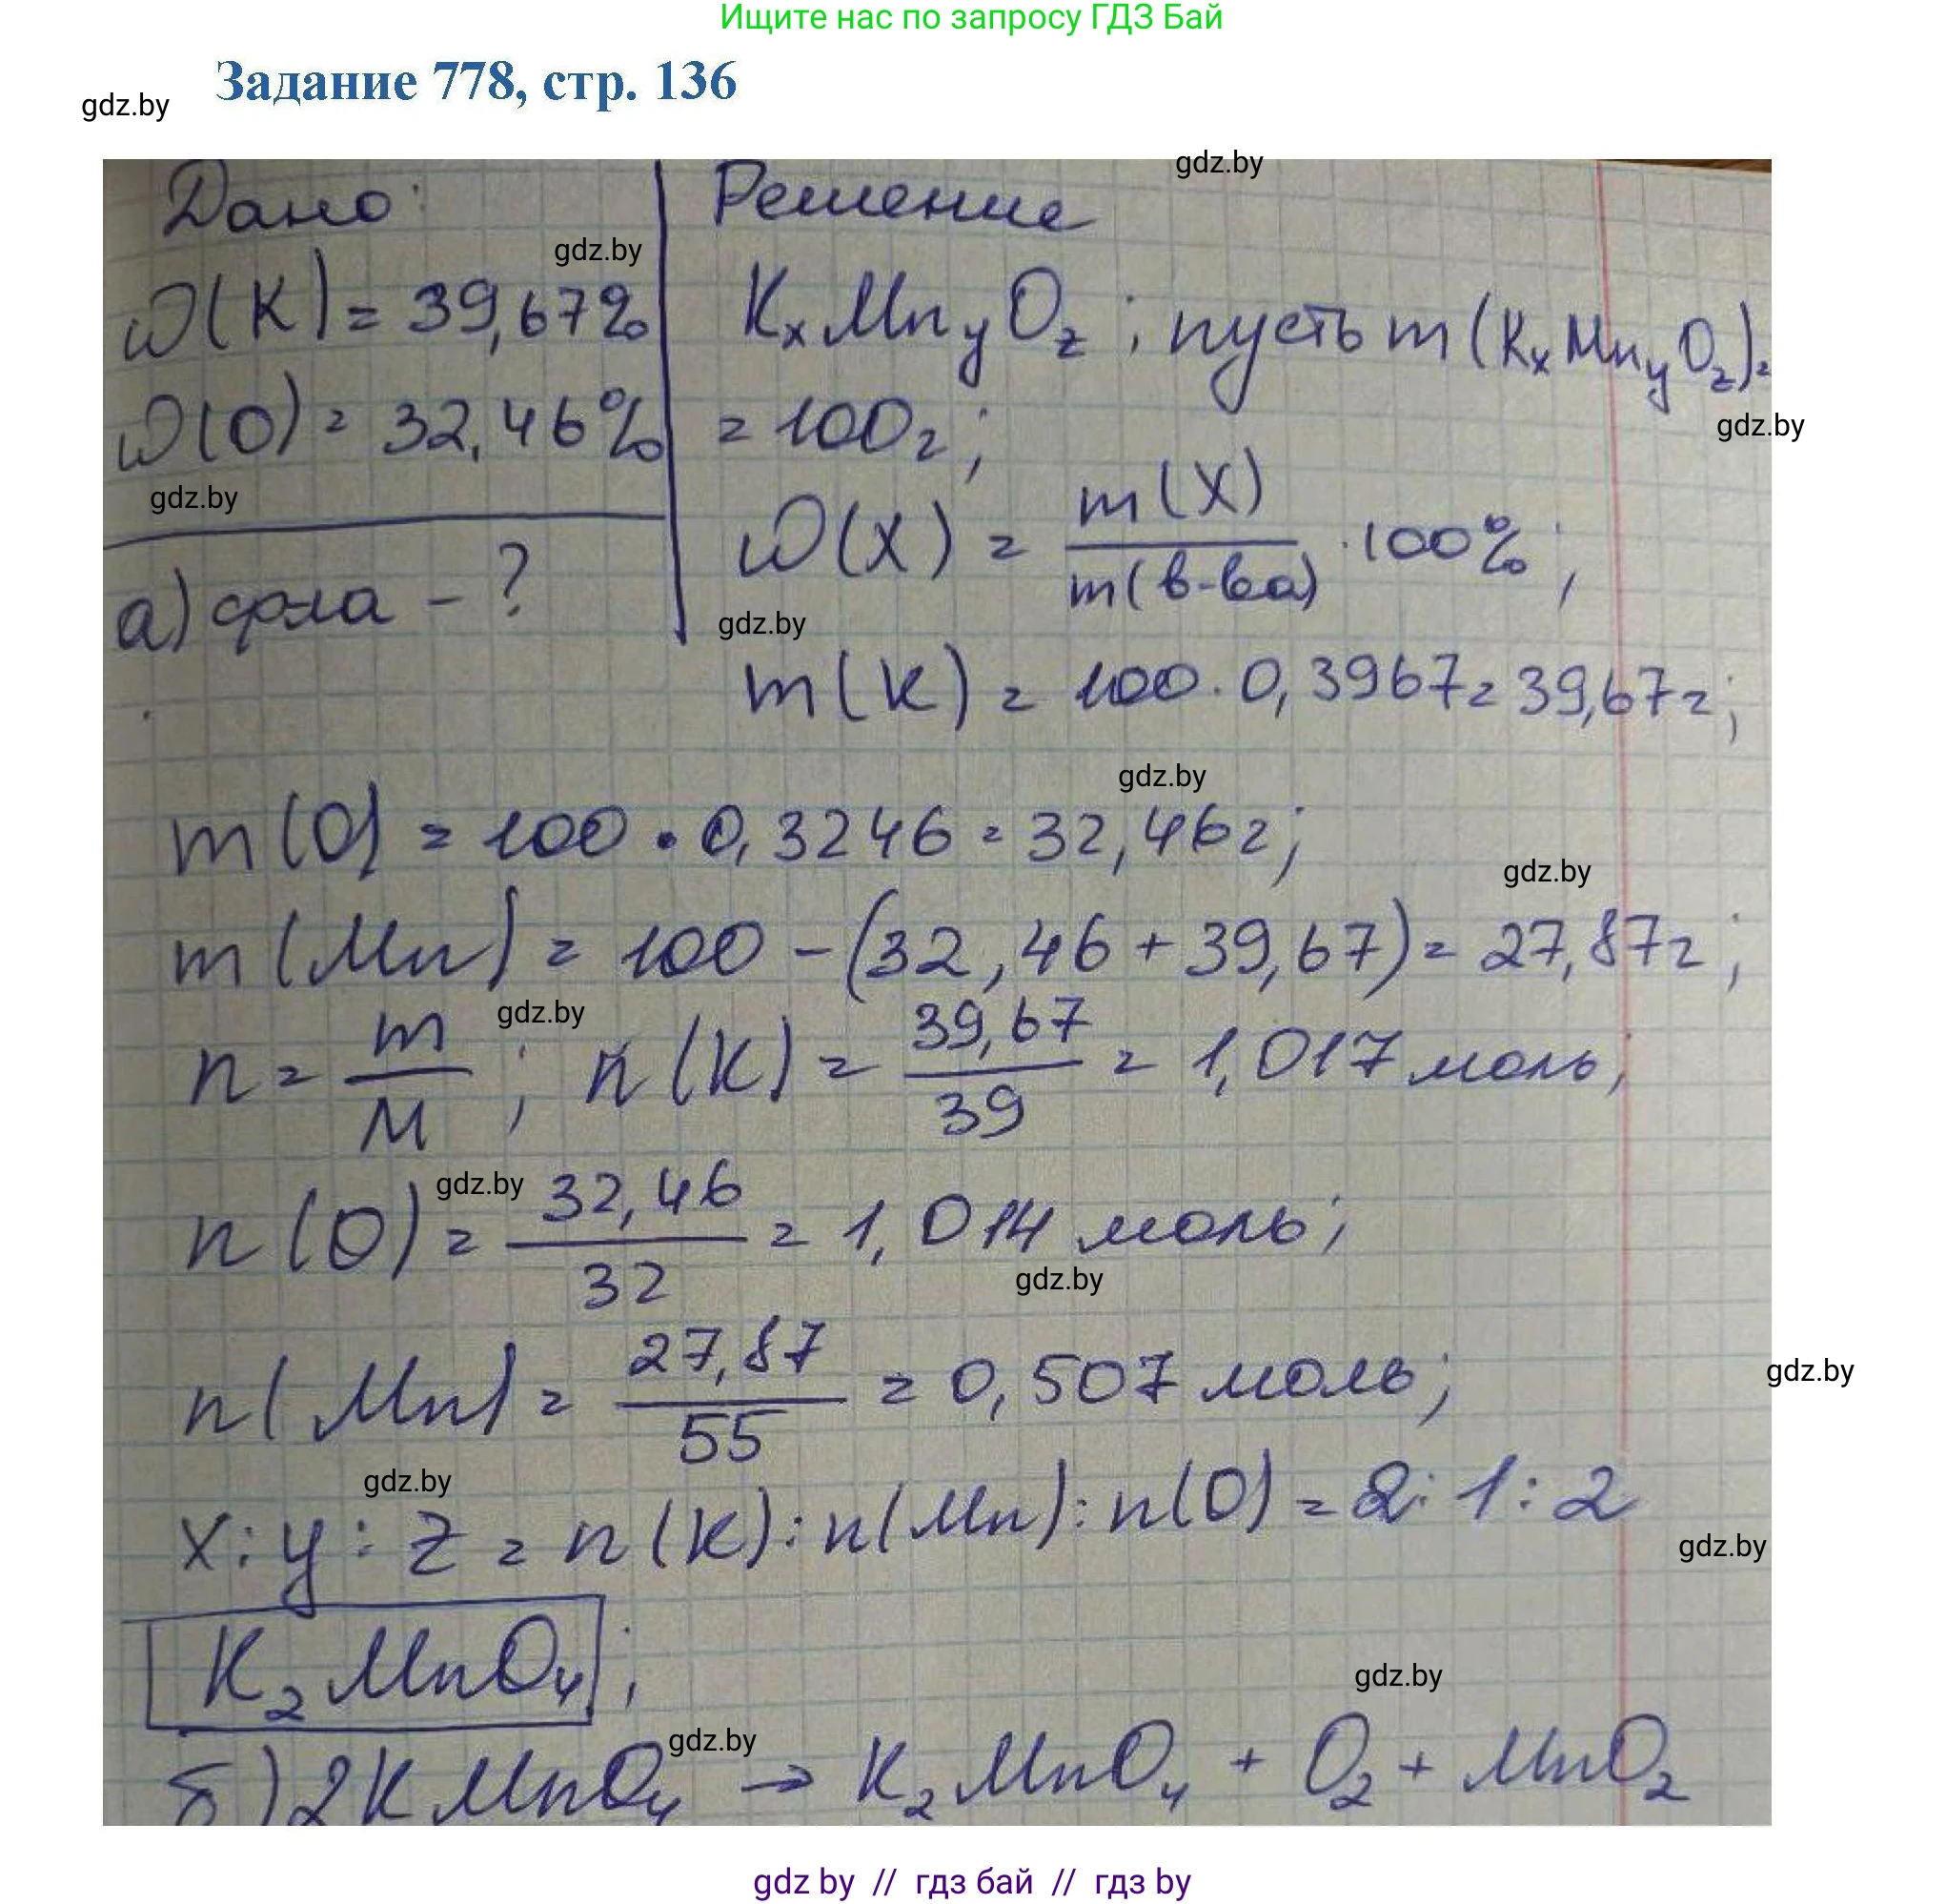 Ищите нас по запросу ГДЗ Бай
Задание 778, стр. 136
gdz.by
gdz.by
Дано:
Решение
gdz.by
ω(K) = 39,67%
KxMnyOz ; пусть m (KxMnyOz) =
ω(O) = 32,46%
= 100г;
gdz.by
gdz.by
ω(X) = m(X) / m(в-ва) · 100% ;
а) ф-ла - ?
gdz.by
m(K) = 100 · 0,3967 = 39,67г;
gdz.by
m(O) = 100 · 0,3246 = 32,46г;
gdz.by
m(Mn) = 100 - (32,46 + 39,67) = 27,87г;
gdz.by
n = m / M ; n(K) = 39,67 / 39 = 1,017 моль;
gdz.by
n(O) = 32,46 / 32 = 1,014 моль;
gdz.by
n(Mn) = 27,87 / 55 = 0,507 моль;
gdz.by
gdz.by
x : y : z = n(K) : n(Mn) : n(O) = 2 : 1 : 2
gdz.by
K₂MnO₄ ;
gdz.by
gdz.by
б) 2KMnO₄ → K₂MnO₄ + O₂ + MnO₂
gdz by // гдз бай // гдз by